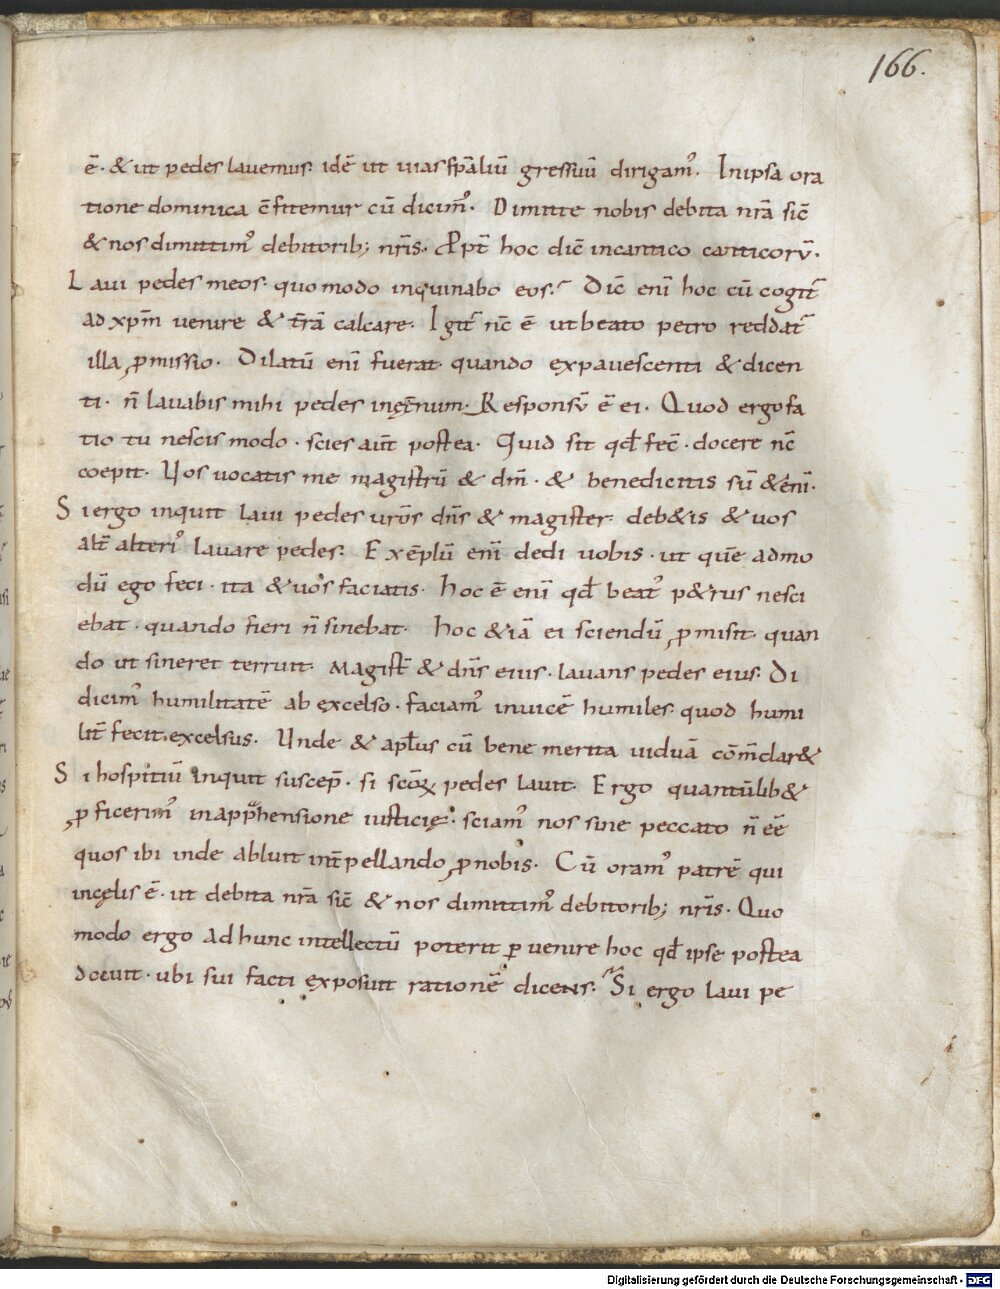 166.
ē· & ut pedes lauemus· idē ut uias sp̄aliū gressuū dirigam᷒· In ipsa ora
tione dominica c̄fitemur cū dicim᷒· Dimitte nobis debita nr̄a sic̄
& nos dimittim᷒ debitorib; nr̄is· Ppt̄ hoc dic̄ in cantico canticorū·
Laui pedes meos· quomodo inquinabo eos· Dic̄ enī hoc cū cogit̄
ad xp̄m uenire & tr̄ā calcare· Igit̄ nc̄ ē ut beato petro reddat̄
illa ꝓmissio· Dilatū enī fuerat· quando expauescenti & dicen
ti· n̄ lauabis mihi pedes inęt̄num· Responsū ē ei· Quod ergo fa
tio tu nescis modo· scies aut̄ postea· Quid sit qd̄ fec̄· docere nc̄
coepit· Uos uocatis me magistrū & dn̄m· & benedicitis sū &enī·
Si ergo inquit laui pedes uros̄ dn̄s & magister· deb&is & uos
alt̄ alteri᷒ lauare pedes· Exēplū enī dedi uobis· ut quē admo
dū ego feci· ita & uos faciatis· Hoc ē enī qd̄ beat᷒ p&rus nesci
ebat· quando fieri n̄ sinebat· Hoc &iā ei sciendū ꝓmisit· quan
do ut sineret terruit· Magist̄ & dn̄s eius· lauans pedes eius· Di
dicim᷒ humilitatē ab excelso· faciam᷒ inuicē humiles quod humi
lit̄ fecit excelsus· Unde & apl̄us cū bene merita uiduā cōm̄clar&
Si hospitiū inquit suscep̄· si sc̄oꝝ pedes lauit· Ergo quantūlib&
ꝓficerim᷒ in appr̄hensione iusticię· sciam᷒ nos sine peccato n̄ ēē
quos ibi inde abluit int̄pellando ꝓ nobis· Cū oram᷒ patrē qui
in cęlis ē· ut debita nr̄a sic̄ & nos dimittim᷒ debitorib; nr̄is· Quo
modo ergo ad hunc intellectū poterit ꝑuenire hoc qd̄ ipse postea
docuit· ubi sui facti exposuit rationē dicens· Si ergo laui pe
Digitalisierung gefördert durch die Deutsche Forschungsgemeinschaft - DFG